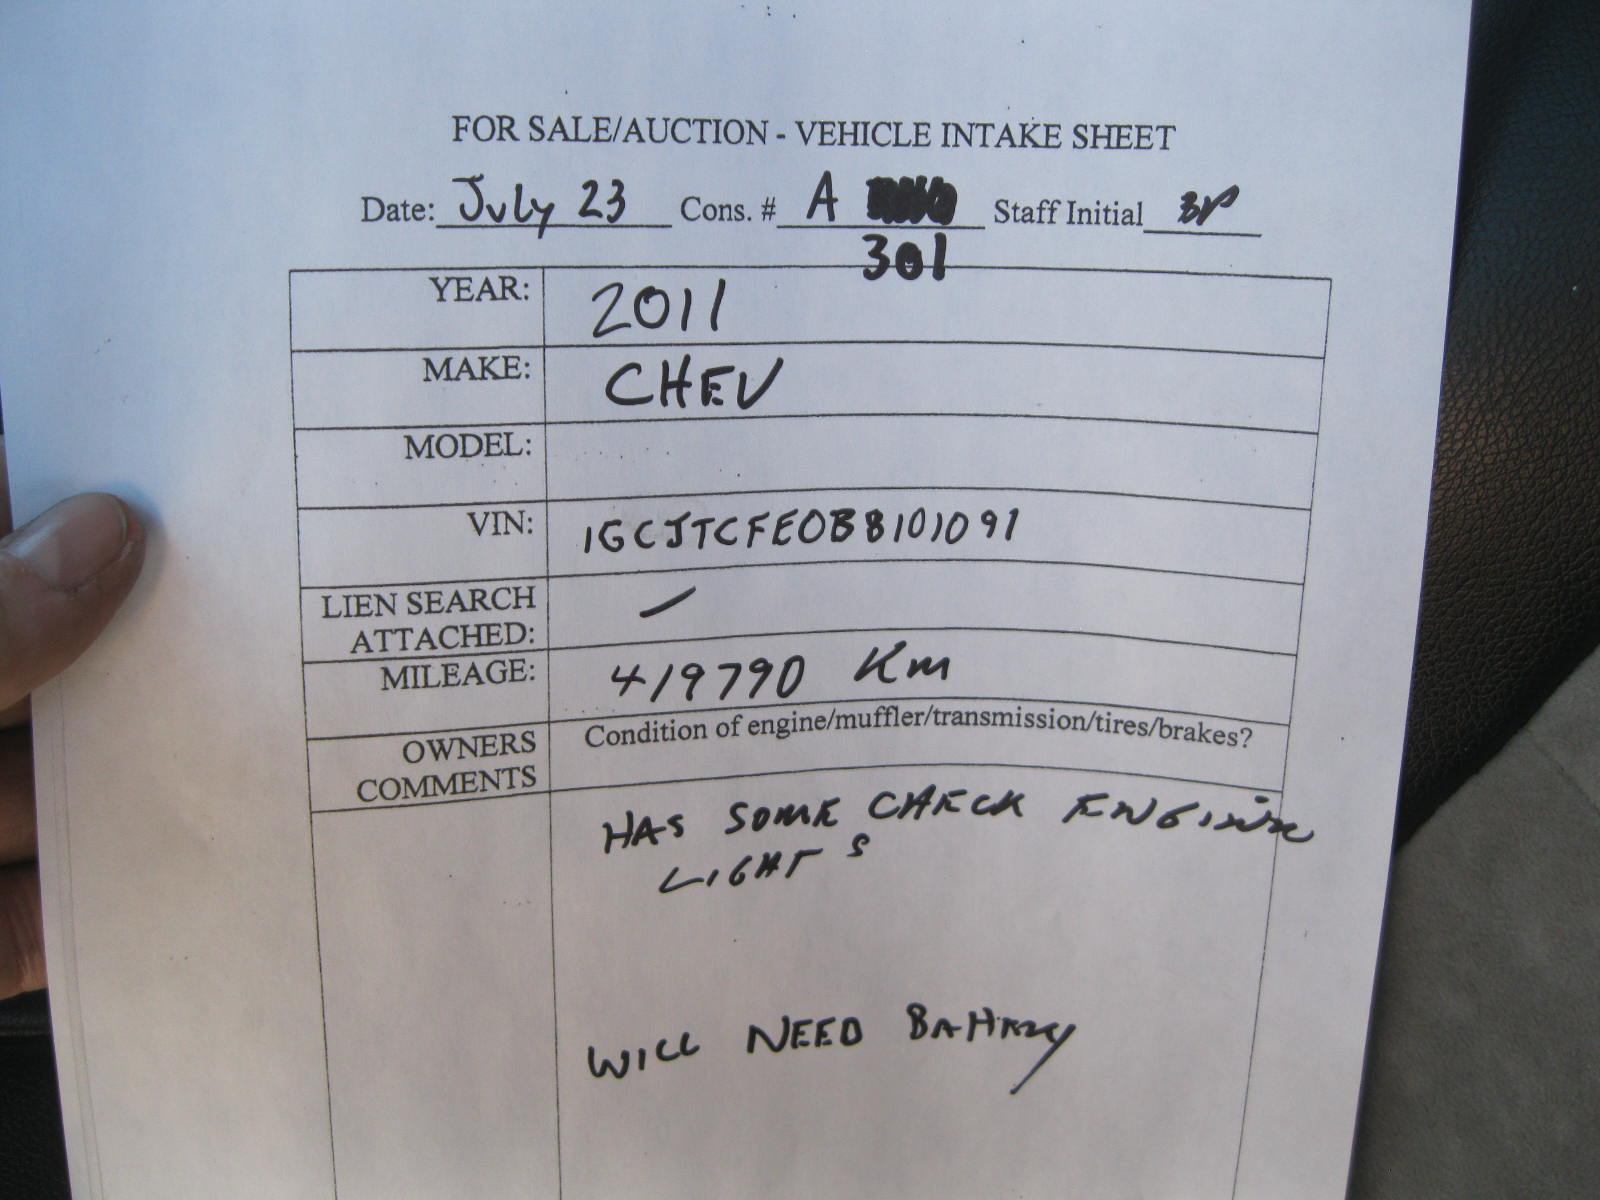 FOR SALE/AUCTION - VEHICLE INTAKE SHEET
Date: July 23 Cons. # A Staff Initial
301
YEAR: 2011
MAKE: CHEV
MODEL:
VIN: 1GCJTCFE0B8101091
LIEN SEARCH
ATTACHED: –
MILEAGE: 419790 Km
OWNERS
COMMENTS
Condition of engine/muffler/transmission/tires/brakes?
HAS SOME CHECK ENGINE
LIGHTS
WILL NEED BATTERY